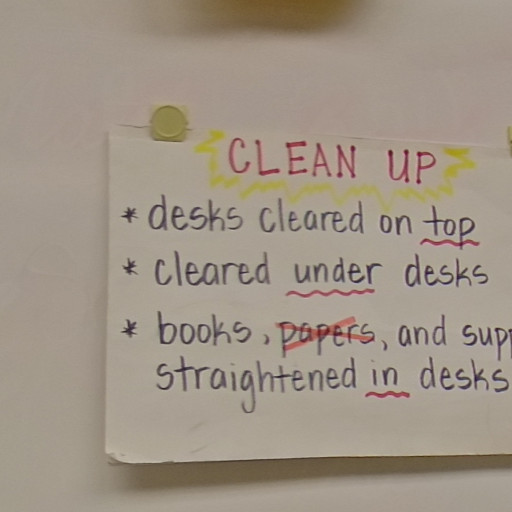 CLEAN UP
* desks cleared on top
* cleared under desks
* books, papers, and
straightened in desks